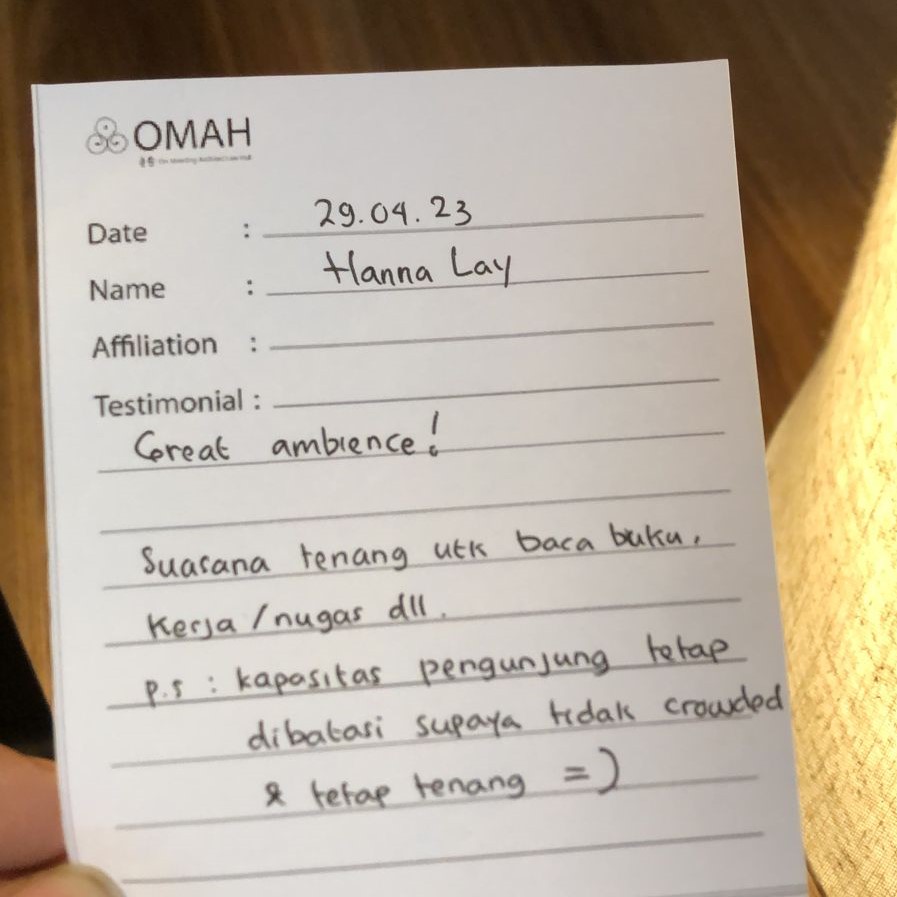 OMAH
Date : 29.04.23
Name : Hanna Lay
Affiliation :
Testimonial :
Great ambience!
Suasana tenang utk baca buku,
kerja/nugas dll.
p.s : kapasitas pengunjung tetap
dibatasi supaya tidak crowded
& tetap tenang =)